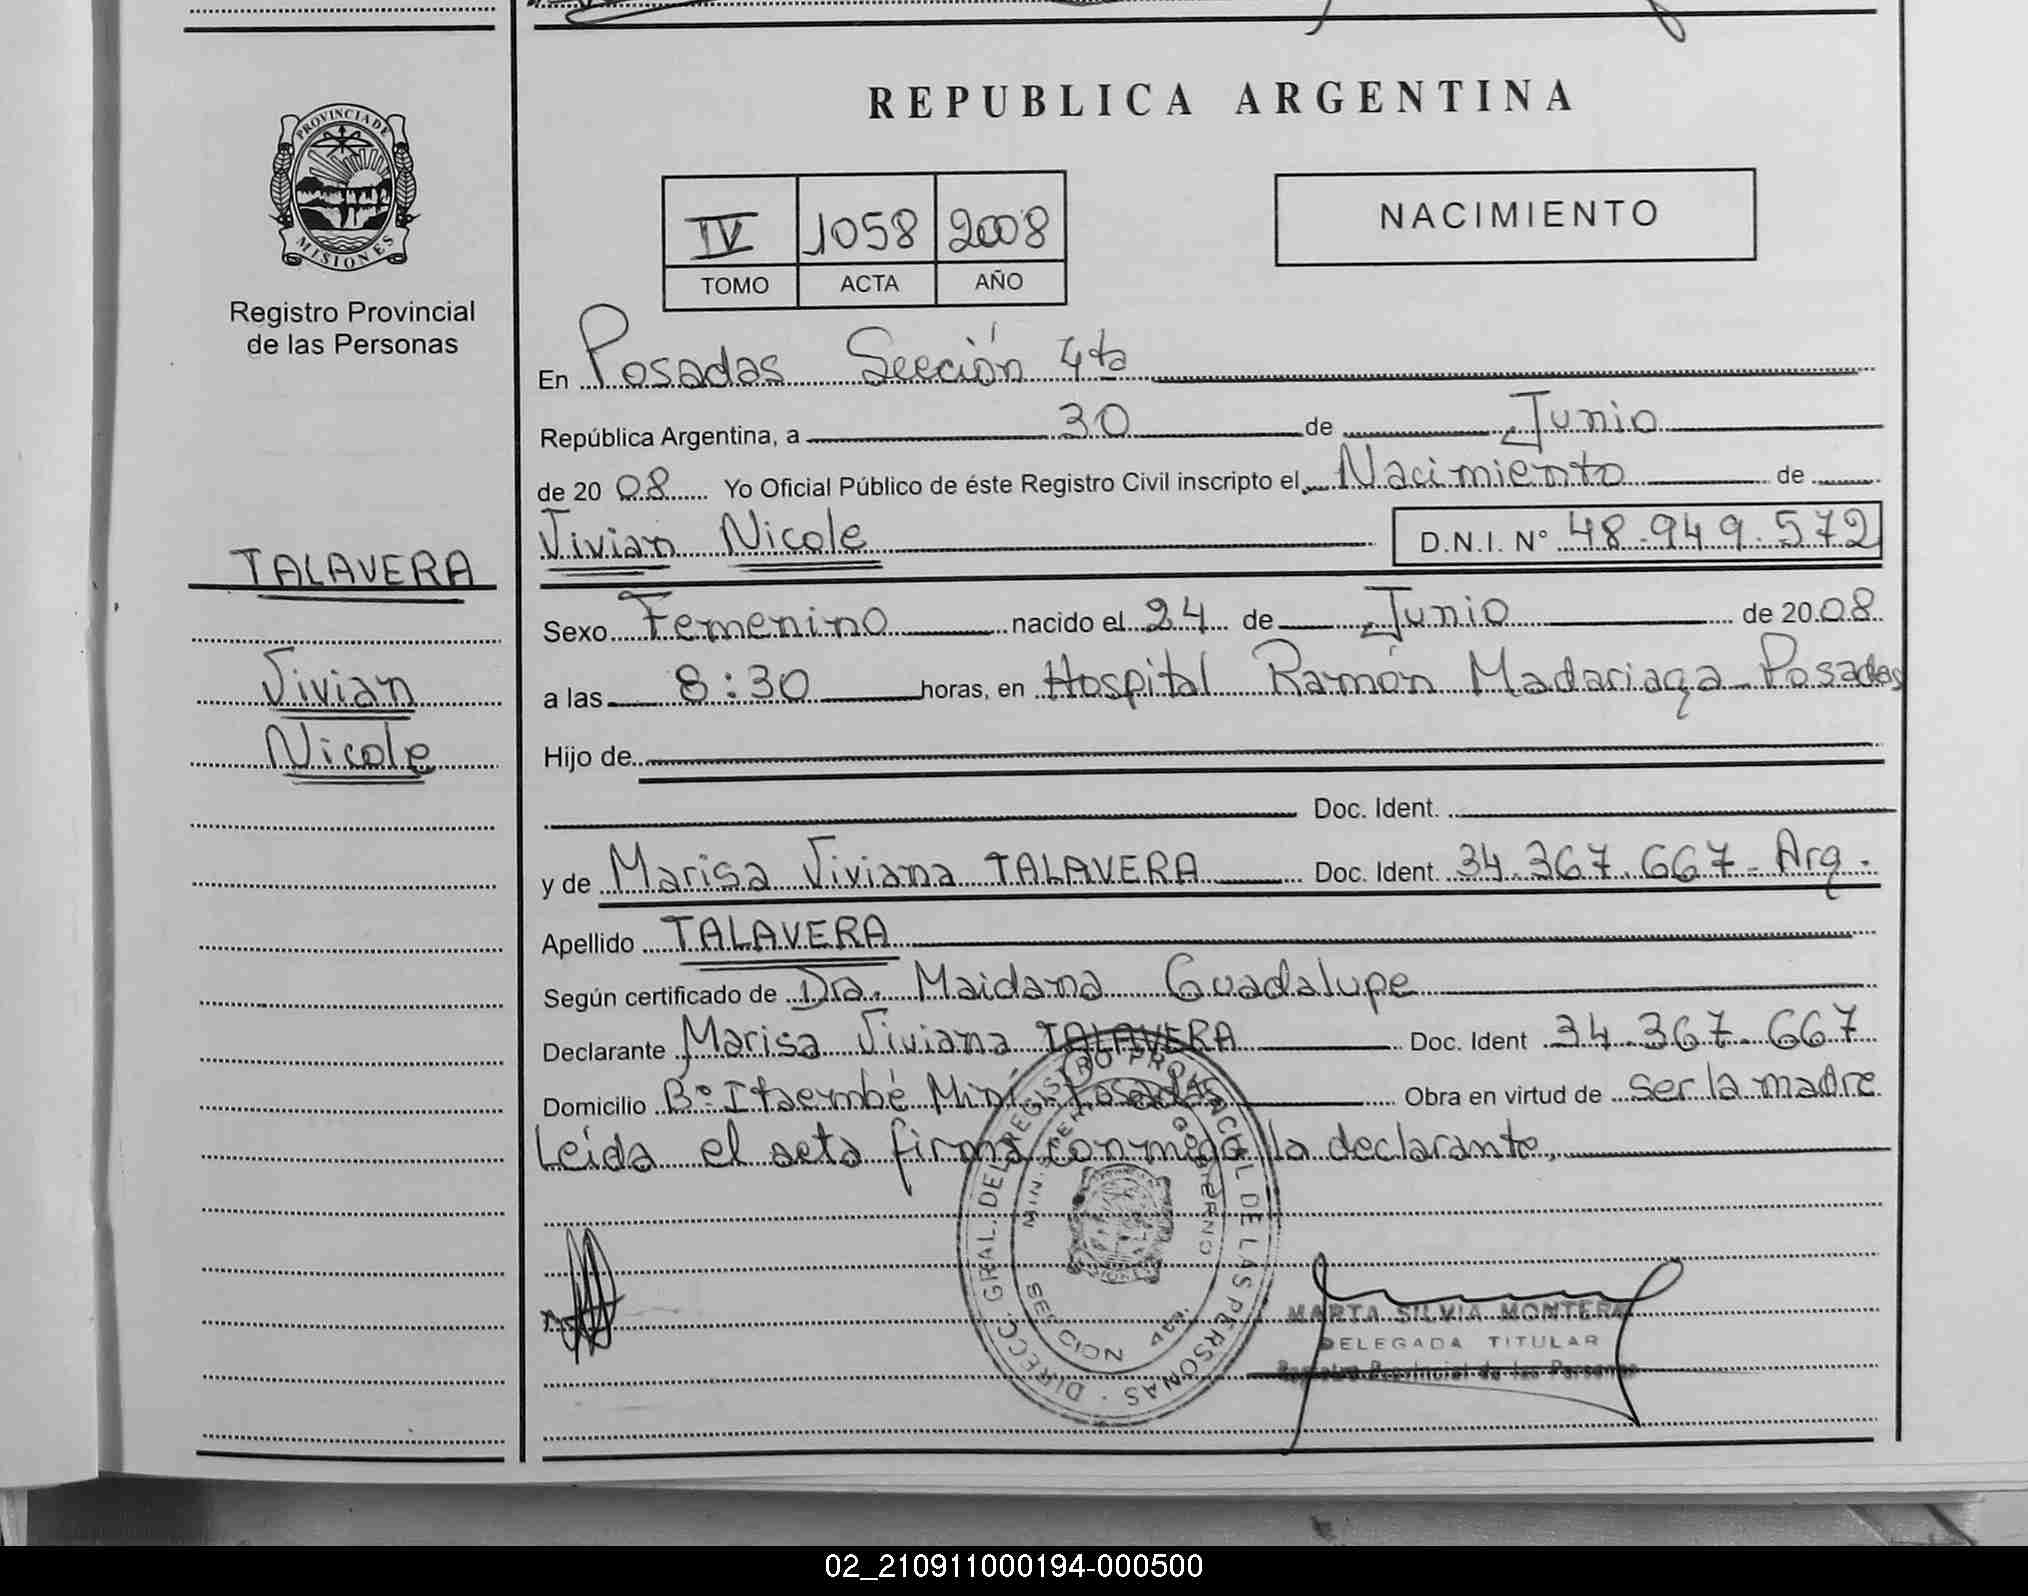 PROVINCIA DE
MISIONES
Registro Provincial
de las Personas
TALAVERA
Vivian
Nicole
REPUBLICA ARGENTINA
IV 1058 2008
TOMO ACTA AÑO
NACIMIENTO
En Posadas Sección 4ta
República Argentina, a 30 de Junio
de 20 08 Yo Oficial Público de éste Registro Civil inscripto el Nacimiento de
Vivian Nicole D.N.I. N° 48.949.572
Sexo Femenino nacido el 24 de Junio de 20 08
a las 8:30 horas, en Hospital Ramón Madariaga Posadas
Hijo de
Doc. Ident.
y de Marisa Viviana TALAVERA Doc. Ident. 34.367.667- Arg.
Apellido TALAVERA
Según certificado de Dra. Maidana Guadalupe
Declarante Marisa Viviana TALAVERA Doc. Ident 34.367.667
Domicilio B° Itaembé Miní Posadas Obra en virtud de ser la madre
Leída el acta firma conmigo la declarante,
DIRECC. GRAL. DEL REGISTRO PROVINCIAL DE LAS PERSONAS
GOBIERNO
SECCION 4ta.
MARTA SILVIA MONTERA
DELEGADA TITULAR
Registro Provincial de las Personas
02_210911000194-000500